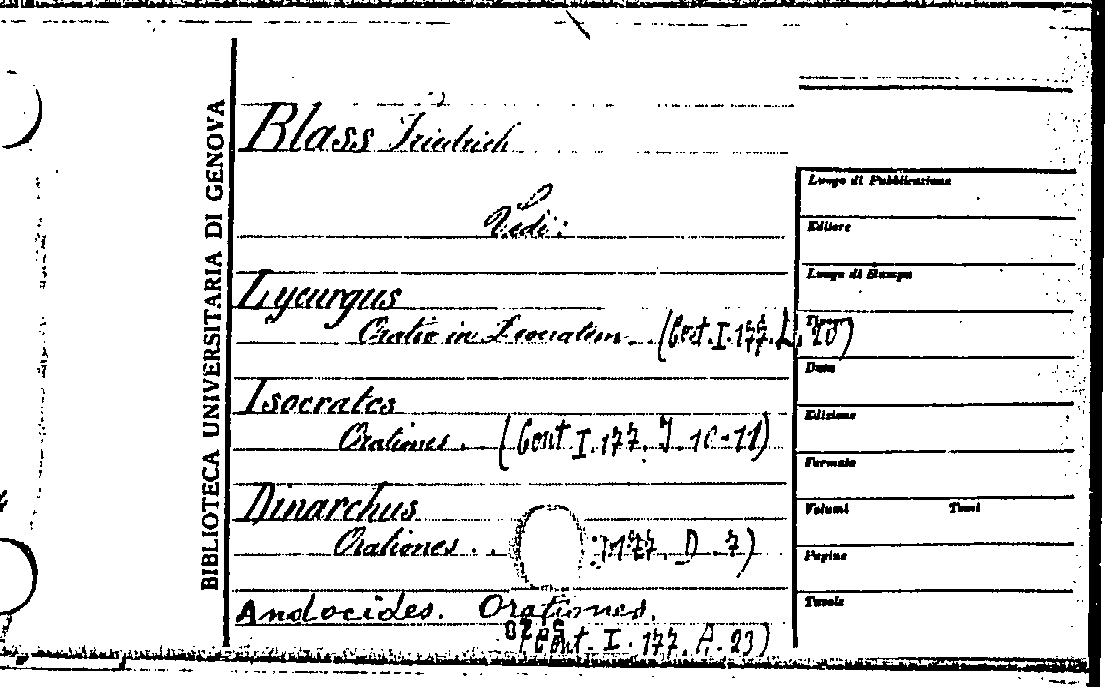 BIBLIOTECA UNIVERSITARIA DI GENOVA
Blass Friedrich
Vedi:
Lycurgus
Oratio in Leocratem. (Cont. I. 177. L. 20)
Isocrates
Orationes. (Cont I. 177. I. 10-11)
Dinarchus
Orationes . . I 177. D. 7)
Andocides. Orationes.
(Cont. I. 177. A. 23)
Luogo di Pubblicazione
Editore
Luogo di Stampa
Data
Edizione
Formato
Volumi Tomi
Pagine
Tavole